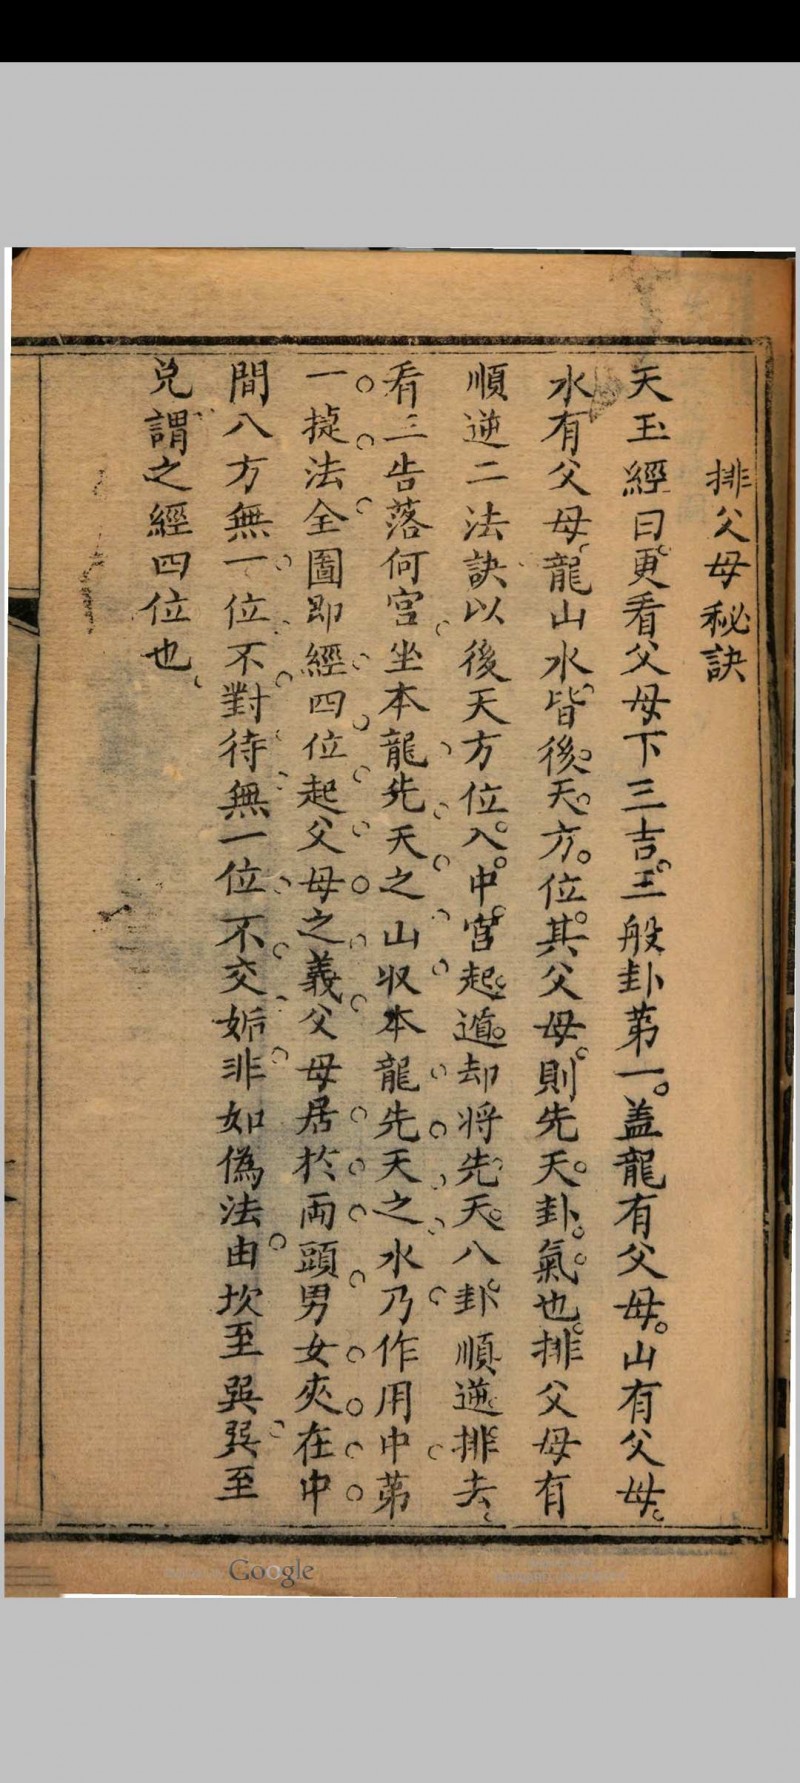 排父母秘訣
天玉經曰更看父母下三吉三般卦苐一盖龍有父母山有父母
水有父母龍山水皆後天方位其父母則先天卦氣也排父母有
順逆二法訣以後天方位入中宮起遁却将先天八卦順逆排去
看三吉落何宮坐本龍先天之山収本龍先天之水乃作用中苐
一㨗法全圖即經四位起父母之義父母居於両頭男女夾在中
間八方無一位不對待無一位不交姤非如偽法由坎至巽巽至
兑謂之經四位也
Google